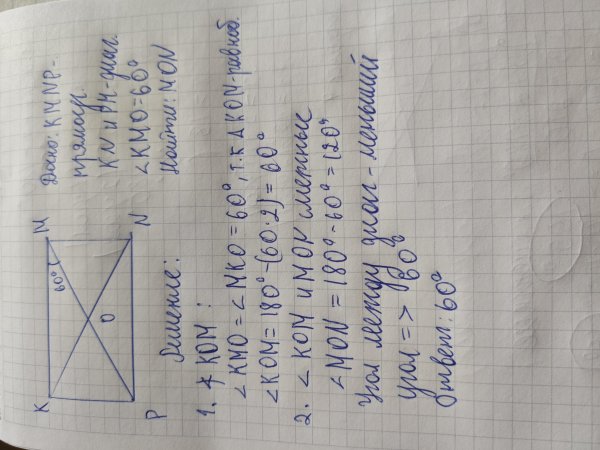 K M
60°
O
P N
Дано: KMNP-
прямоуг.
KN и PM-диаг.
∠KMO=60°
Найти: MON
Решение:
1. KOM:
∠KMO=∠MKO=60°, т.к ΔKOM-равноб.
∠KOM=180°-(60·2)=60°
2. ∠KOM и MON смежные
∠MON=180°-60°=120°
Угол между диаг-меньший
угол => 60°
Ответ: 60°